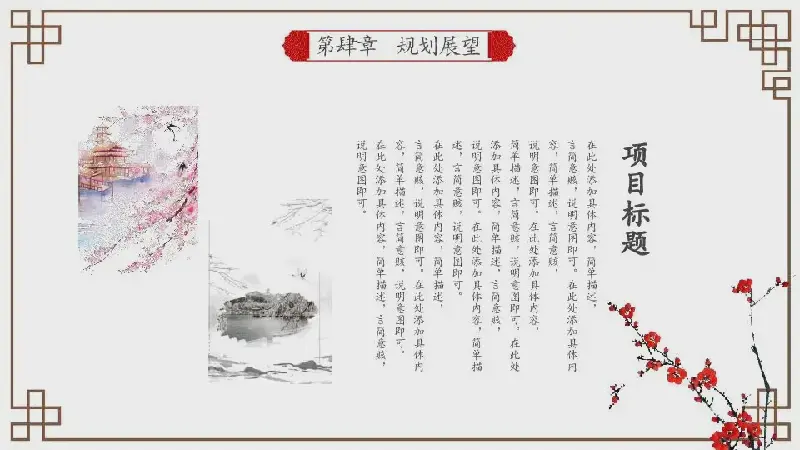 第肆章 规划展望
项目标题
在此处添加具体内容，简单描述，
言简意赅，说明意图即可。在此处添加具体内
容，简单描述，言简意赅，
说明意图即可。在此处添加具体内容，
简单描述，言简意赅，说明意图即可。在此处
添加具体内容，简单描述，言简意赅，
说明意图即可。在此处添加具体内容，简单描
述，言简意赅，说明意图即可。
在此处添加具体内容，简单描述，
言简意赅，说明意图即可。在此处添加具体内
容，简单描述，言简意赅，说明意图即可。
在此处添加具体内容，简单描述，言简意赅，
说明意图即可。